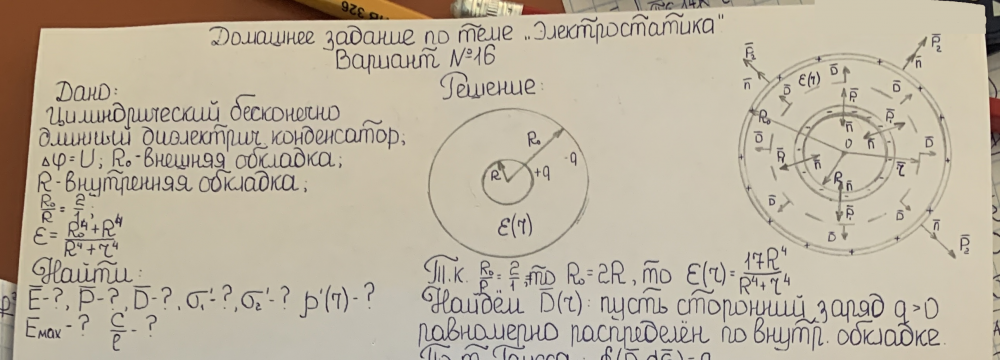 Домашнее задание по теме „Электростатика"
Вариант №16
Дано:
Цилиндрический бесконечно
длинный диэлектрич. конденсатор;
Δφ=U; R₀-внешняя обкладка;
R-внутренняя обкладка;
R₀/R = 2/1;
ε = (R₀⁴+R⁴)/(R⁴+r⁴)
Найти:
E̅-?, P̅-?, D̅-?, σ₁'-?, σ₂'-? ρ'(r)-?
E̅мах-? C/ℓ -?
Решение:
R₀
R
+q
-q
ε(r)
P̅₂
n̅
D̅
ε(r)
R₀
O
R
r̅
Т.к. R₀/R = 2/1, то R₀=2R, то ε(r)= 17R⁴/(R⁴+r⁴)
Найдём D̅(r): пусть сторонний заряд q>0
равномерно распределён по внутр. обкладке.